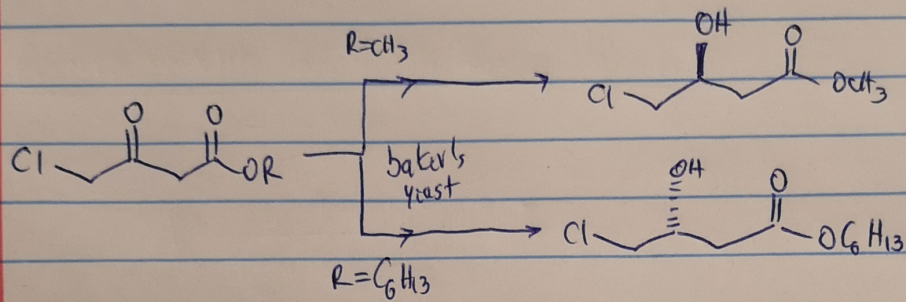 R=CH3
OH
O
Cl
OCH3
O
O
Cl
OR
baker's
yeast
OH
O
Cl
OC6H13
R=C6H13